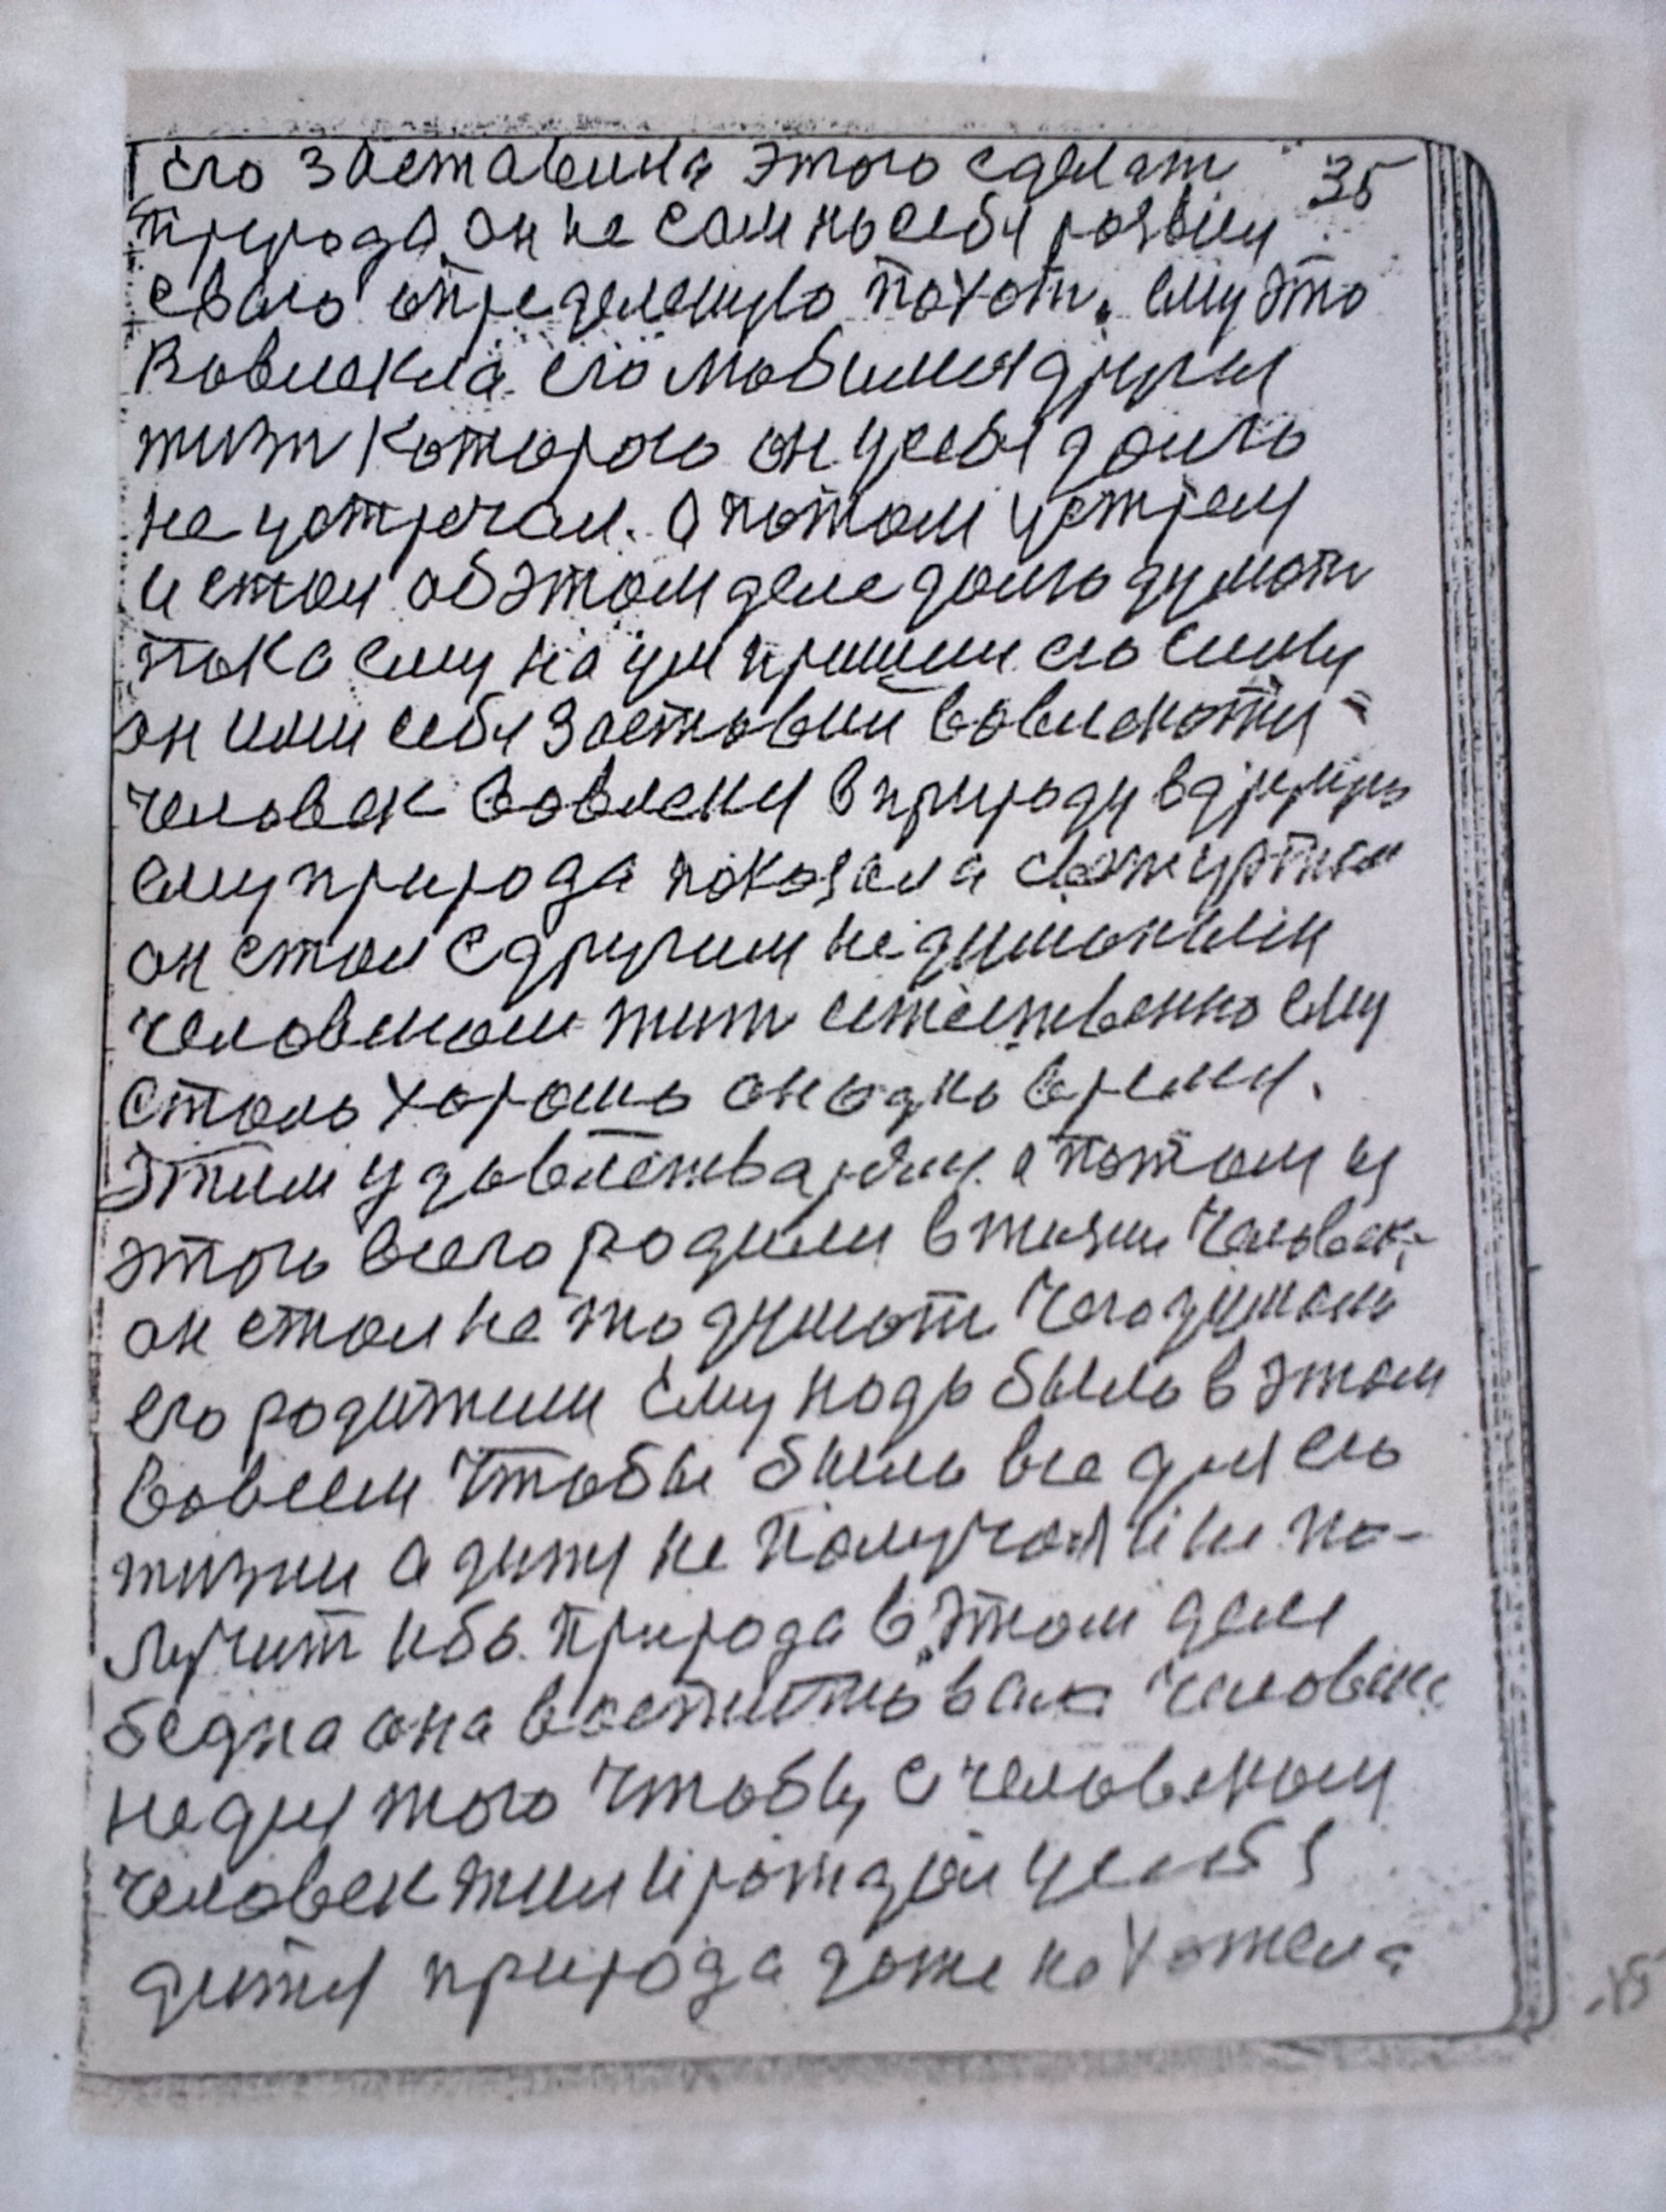 его заставила этого сделат 35
природа он не сам на себя розвил
сваго определеную похот. ему это
вовлекла его любимая другия
жизн которого он у себя долго
не устречал. а потом устрел
и стал об этом деле долго думат
пока ему на ум пришли его силы
он ими себя заставил вовлекатся
человек вовлекся в природу в другую
ему природа показала
он стал с другим
человеком жит естественно ему
стало хорошо он одно время.
этим удовлетварялся. а потом из
этого всего родили в жизни человека
он стал не то думат чего думали
его родители ему надо было в этом
вовсем чтобы было все для его
жизни а дитя не получал и не по-
лучит ибо природа в этом деле
бедна она человека
не для того чтобы с человеком
человек жил и рождал у себя
дитя природа даже не хотела
15